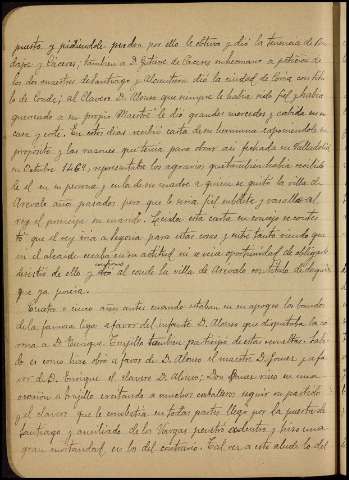 puesta y pidiéndole perdon por ello le estuvo y dió la tenencia de
dajoz y Cáceres; tambien a D. Gutierre de Cáceres su hermano a peticion de
los dos maestres de Santiago y Alcántara dió la ciudad de Coria con títu
lo de Conde; al Clavero D. Alonso que siempre le habia sido fiel y habia
a su propio Maestre le dió grandes mercedes y cabida en su
casa y corte. En estos dias recibió carta de su hermana esponiendole su
proposito y las razones que tenia para obrar asi fechada en Valladolid
en Octubre 1468, representaba los agravios que tambien habia recibido
de él en su persona y en la de su madre a quien se quitó la villa de
Arevalo años pasados pero que le seria fiel subdita y vasallo al
rey el principe su marido. Leida esta carta en consejo se contes
tó que el rey iria a Segovia para estas cosas y entre tanto viendo que
ni el alcaide estaba en su actitud ni se veia oportunidad de obligarle
desistió de ello y dió al conde la villa de Arevalo con título de duque
que ya poseia.
Cuatro o cinco años antes cuando estaban en su apogeo los bandos
de la famosa liga a favor del infante D. Alonso que disputaba la co
rona a D. Enrique. Trujillo tambien participó de estas revueltas; ha
do en como hizo obró a favor de D. Alonso el maestre D. Gomez y a fa
vor de D. Enrique el clavero D. Alonso; Don Gomez vino en una
ocasion a Trujillo excitando a muchos caballeros seguir su partido
y el clavero que le combatia en todas partes llegó por la puerta de
Santiago y auxiliado de los Vargas penetró adentro y hizo una
gran mortandad en los del contrario. Tal vez a esto alude lo del